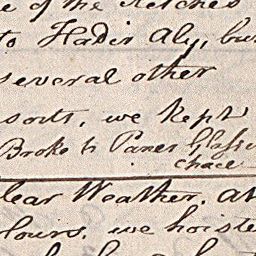 e of the Ketches
to Hadir Aly, bu
several other
sorts, we kept
Broke 6 Panes Glass
chace
lear Weather. at
lours, we hoiste